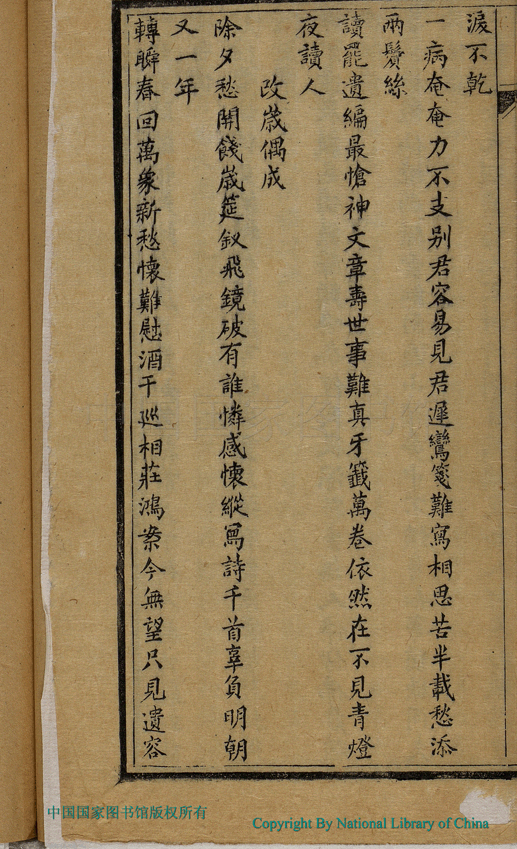 淚不乾
一病奄奄力不支別君容易見君遲鸞箋難寫相思苦半載愁添
兩鬢絲
讀罷遺編最愴神文章壽世事難真牙籤萬卷依然在不見青燈
夜讀人
改歲偶成
除夕愁開餞歲筵釵飛鏡破有誰憐感懷縱寫詩千首辜負明朝
又一年
轉瞬春回萬象新愁懷難慰酒千巡相莊鴻案今無望只見遺容
中国国家图书馆版权所有
Copyright By National Library of China